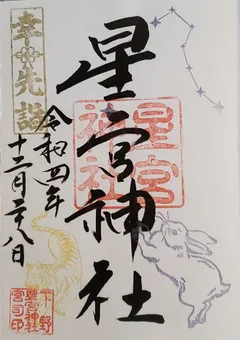 幸先詣
星宮神社
星宮
神社
令和四年
十二月二十八日
下野
星宮神社
宮司印